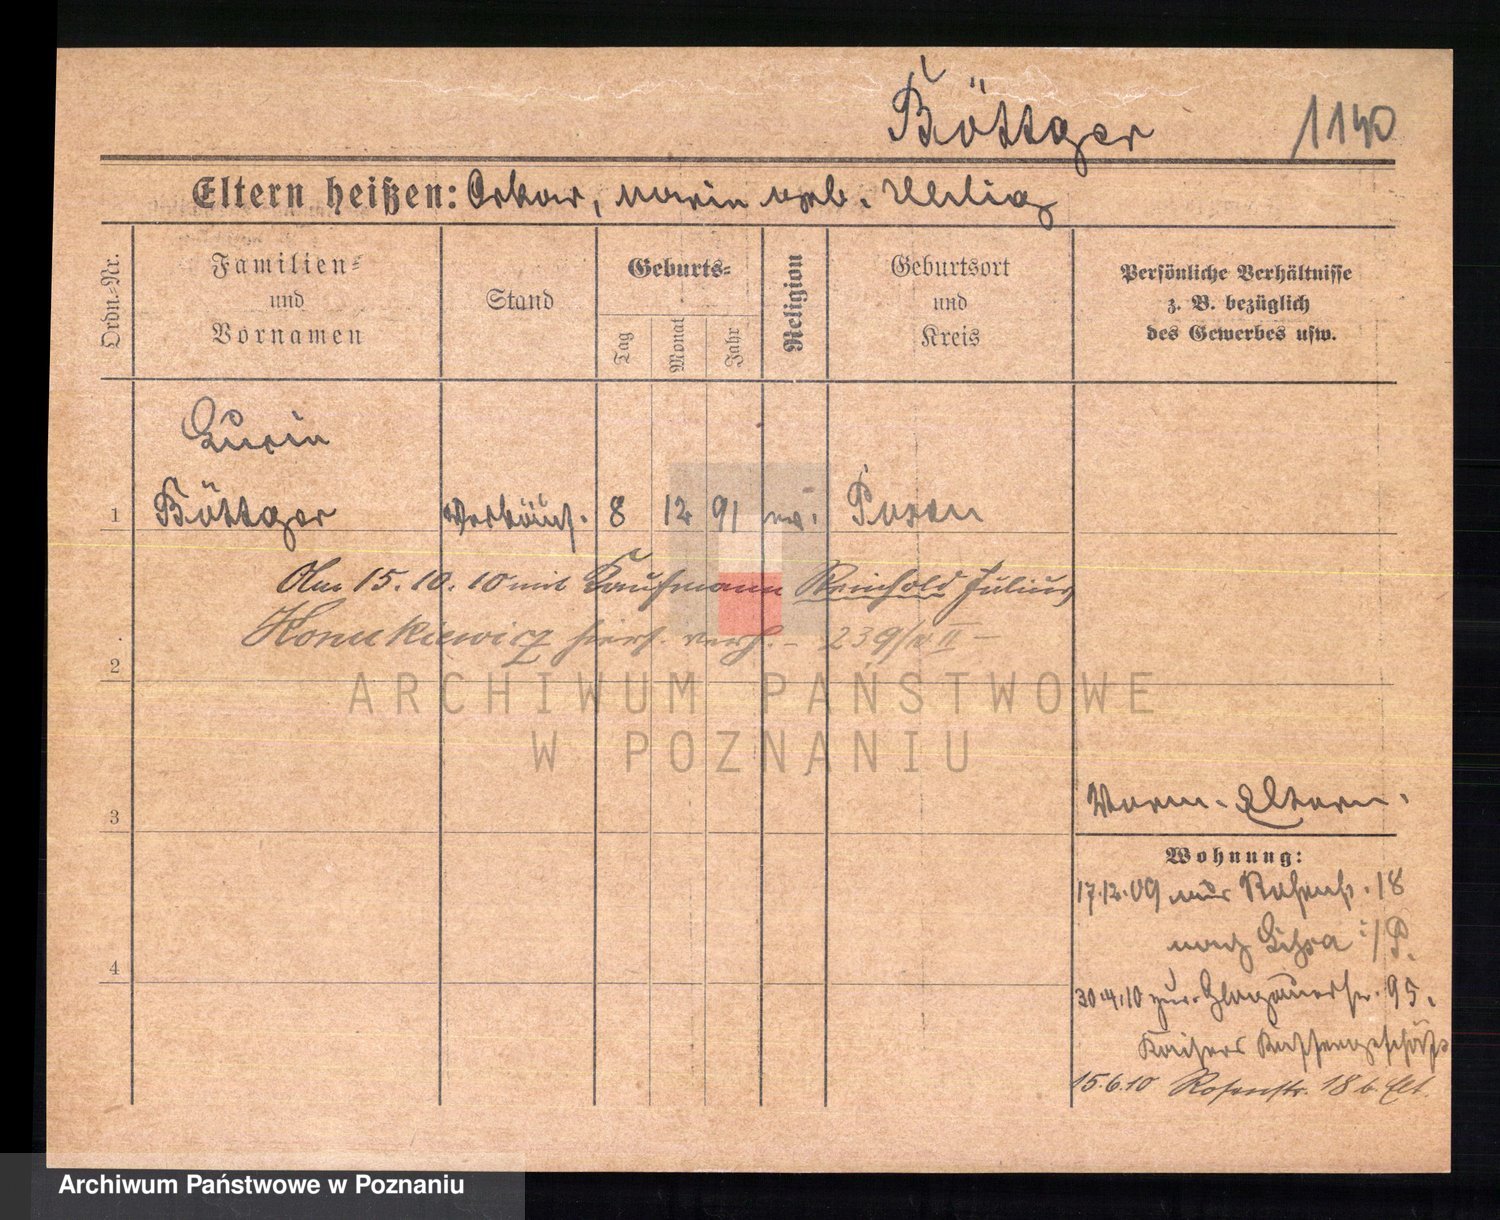 Böttger 1140
Eltern heißen: Oskar, Marie geb. Uhlig
Ordn.-Nr.
Familien-
und
Vornamen
Stand
Geburts-
Tag
Monat
Jahr
Religion
Geburtsort
und
Kreis
Persönliche Verhältnisse
z. B. bezüglich
des Gewerbes usw.
1 Böttger Verkäuf. 8 12 91 ev. Posen
Am 15.10.10 mit Kaufmann Reinhold Julius
hiers. verh. - 239/ II -
2
ARCHIWUM PAŃSTWOWE
W POZNANIU
3
Eltern.
Wohnung:
17.12.09 Rosenstr. 18
nach
4
30.4.10 zur. Glogauerstr. 95.
Kaisers Kaffeegeschäft
15.6.10 Rosenstr. 18 b. Elt.
Archiwum Państwowe w Poznaniu